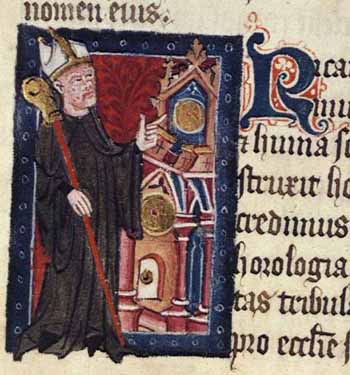 nomen eius.
Rica
struxit ho
credimus
horologia
tas tribula
pro ecclie